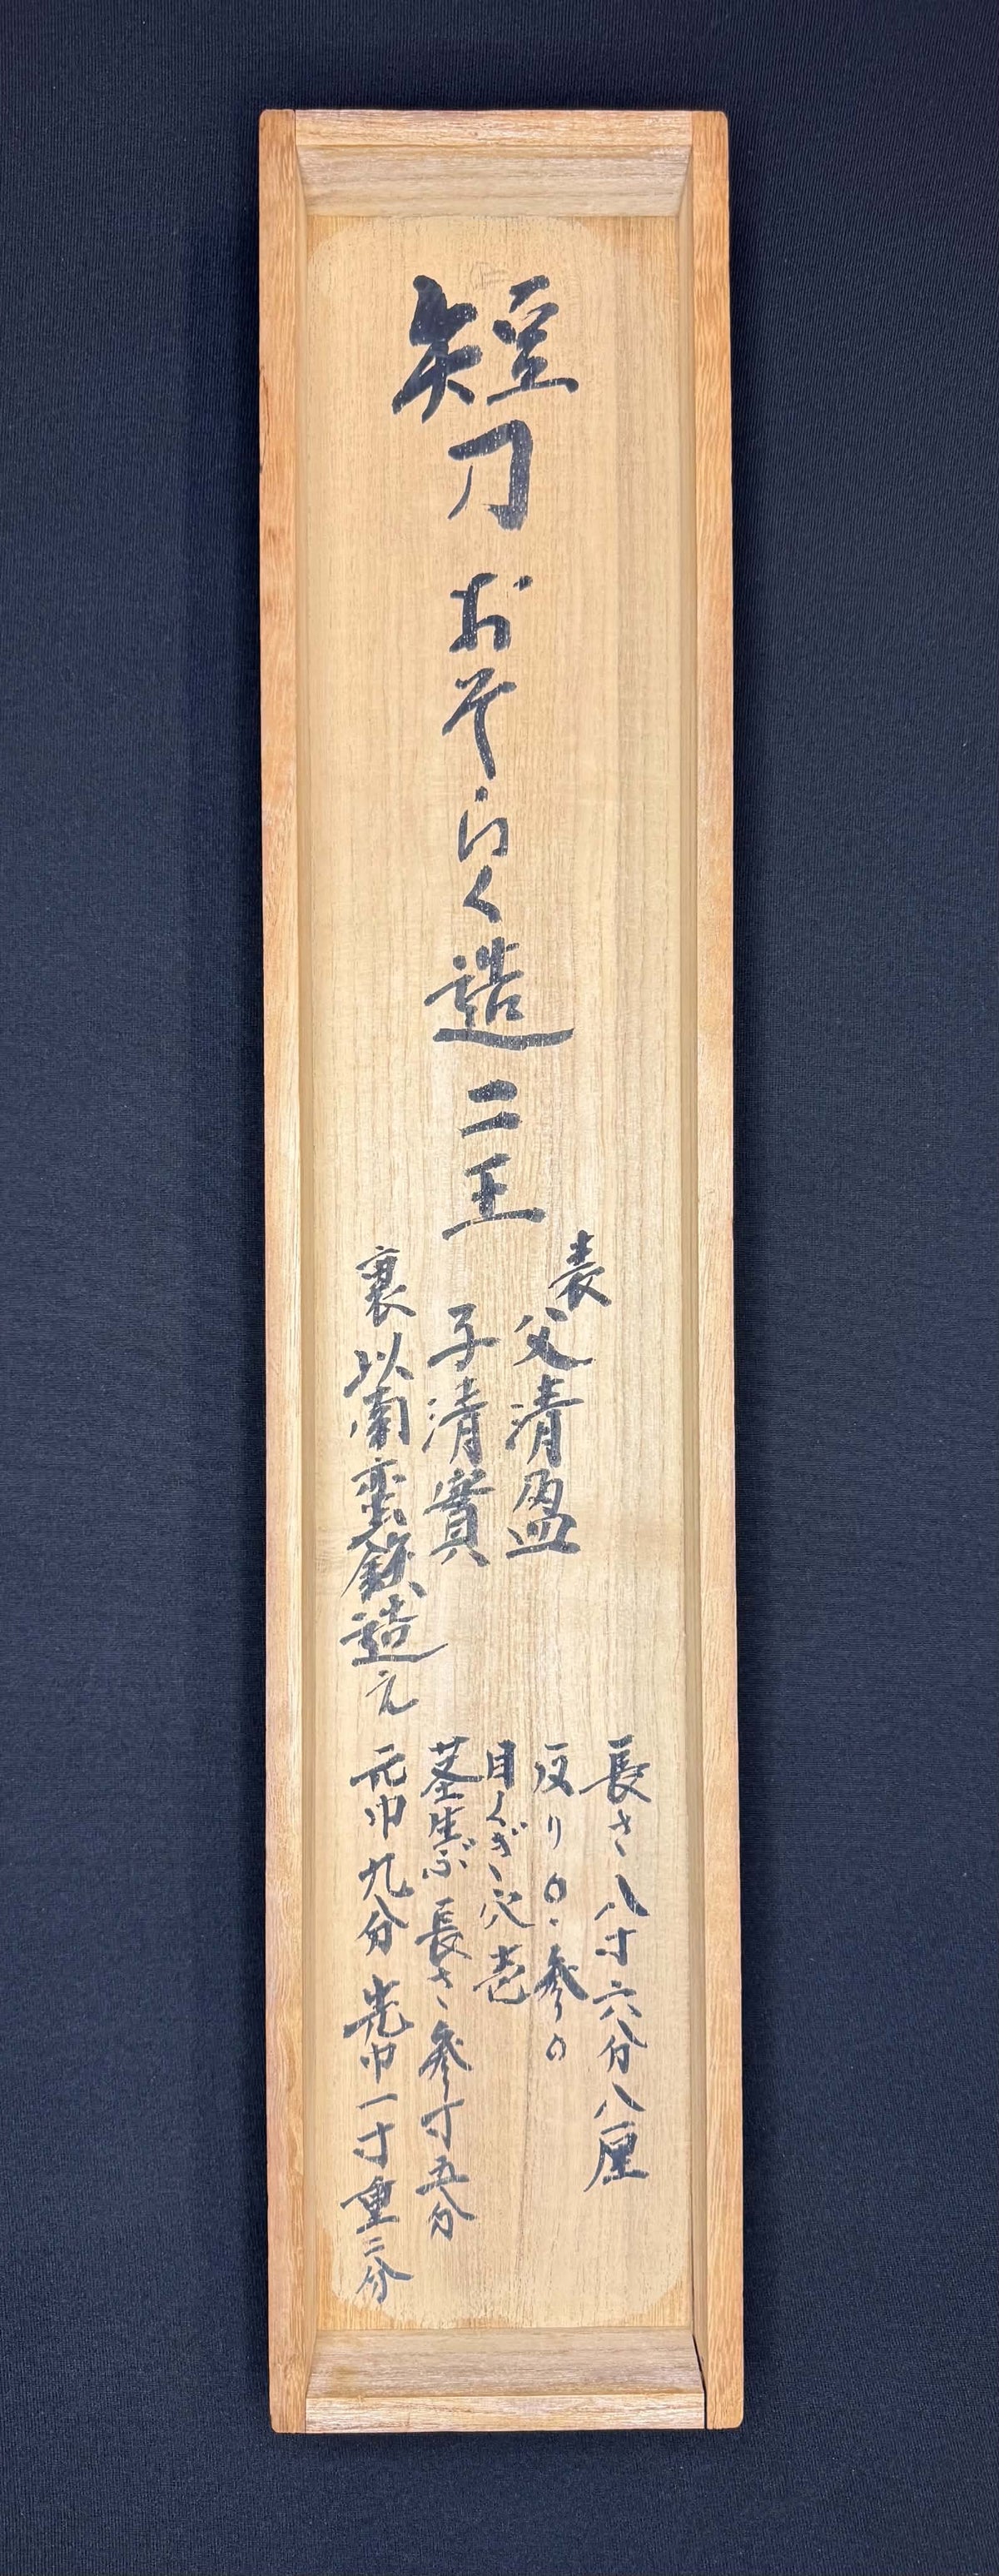 短刀 おそらく造 二王
表 父清盈
子清實
裏 以南蛮鉄造之
長さ 八寸六分八厘
反り 0.参0
目くぎ穴 壱
茎生ぶ 長さ 参寸五分
元巾 九分 先巾 一寸 重 二分